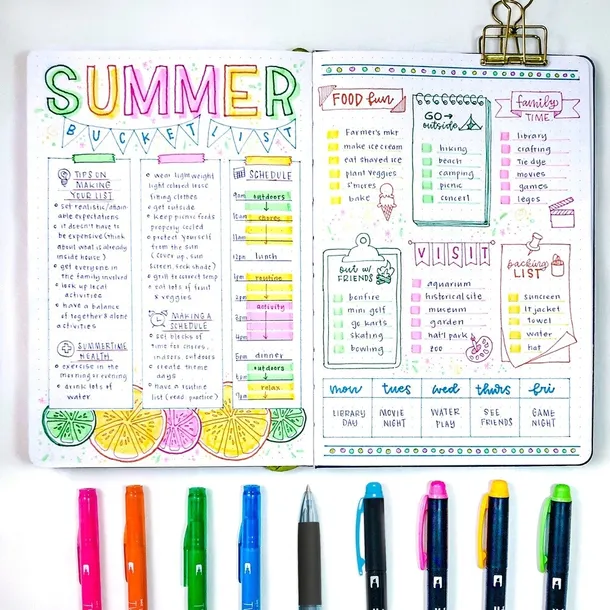 SUMMER
BUCKET LIST
TIPS ON
MAKING
YOUR LIST
set realistic/attain-
able expectations
it doesn't have to
be expensive (think
about what is already
inside house)
get everyone in
the family involved
look up local
activities
have a balance
of together & alone
activities
SUMMERTIME
HEALTH
exercise in the
morning or evening
drink lots of
water
wear lightweight
light colored loose
fitting clothes
get outside
keep picnic foods
properly cooled
protect yourself
from the sun
(cover up, sun
screen, seek shade)
grill to correct temp
eat lots of fruit
& veggies
MAKING A
SCHEDULE
set blocks of
time for chores,
indoors, outdoors
create theme
days
have a routine
list (read, practice)
SCHEDULE
9am outdoors
10am chores
11am
12pm lunch
1pm routine
2pm
3pm activity
4pm
5pm dinner
outdoors
relax
FOOD fun
Farmer's mkt
make ice cream
eat shaved ice
plant veggies
s'mores
bake
GO→
outside
hiking
beach
camping
picnic
concert
family
TIME
library
crafting
Tie dye
movies
games
legos
out w/
FRIENDS
bonfire
mini golf
go karts
skating
bowling
VISIT
aquarium
historical site
museum
garden
nat'l park
zoo
packing
LIST
sunscreen
lt jacket
towel
water
hat
mon tues wed thurs fri
LIBRARY DAY MOVIE NIGHT WATER PLAY SEE FRIENDS GAME NIGHT